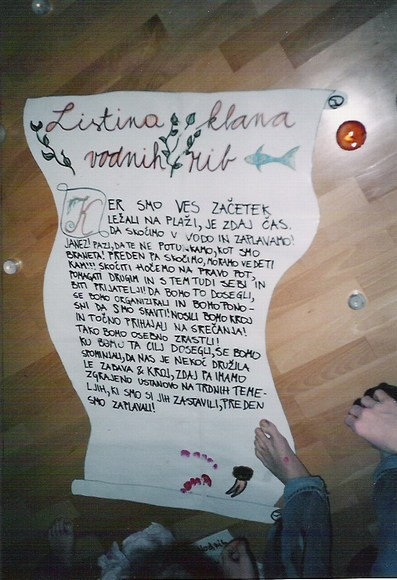 Listina klana
vodnih rib
KER SMO VES ZAČETEK
LEŽALI NA PLAŽI, JE ZDAJ ČAS,
DA SKOČIMO V VODO IN ZAPLAVAMO!
JANEZ! PAZI, DA TE NE POTU.. KAMO, KOT SMO
BRANETA! PREDEN PA SKOČIMO, MORAMO VEDETI
KAM!!! SKOČITI HOČEMO NA PRAVO POT,
POMAGATI DRUGIM IN S TEM TUDI SEBI IN
BITI PRIJATELJI! DA BOMO TO DOSEGLI,
SE BOMO ORGANIZIRALI IN BOMO PONO-
SNI DA SMO SKAVTI! NOSILI BOMO KROJ
IN TOČNO PRIHAJALI NA SREČANJA!
TAKO BOMO OSEBNO ZRASTLI!
KO BOMO TA CILJ DOSEGLI, SE BOMO
SPOMINJALI, DA NAS JE NEKOČ DRUŽILA
LE ZABAVA & KROJ, ZDAJ PA IMAMO
ZGRAJENO USTANOVO NA TRDNIH TEME-
LJIH, KI SMO SI JIH ZASTAVILI, PREDEN
SMO ZAPLAVALI!